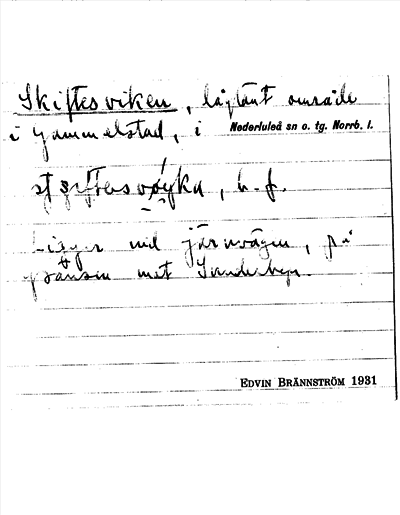 Skiftesviken, låglänt område
i Gammelstad, i Nederluleå sn o. tg. Norrb. l.
, b. f.
Ligger vid järnvägen, på
gränsen mot Sunderbyn.
EDVIN BRÄNNSTRÖM 1931